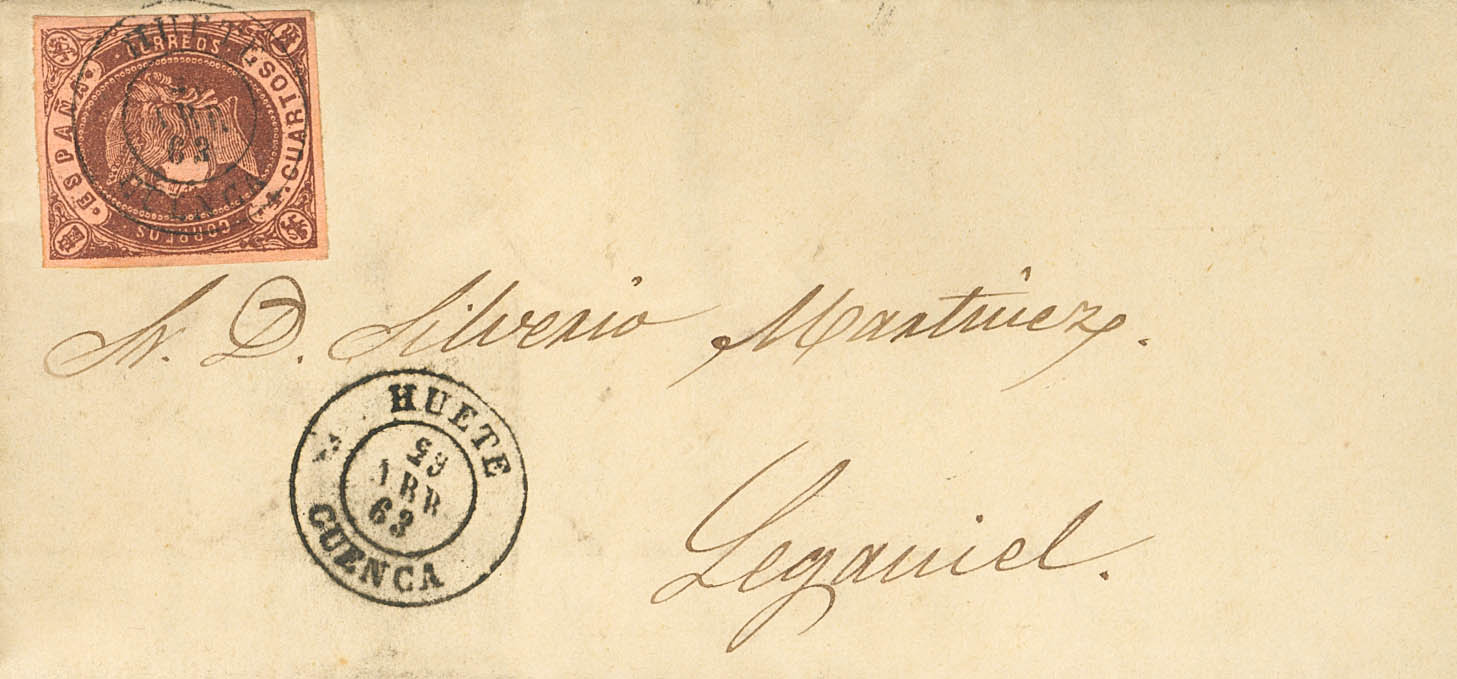 CORREOS
ESPAÑA
4 CUARTOS
CORREOS
HUETE
63
CUENCA
Sr. D. Silverio Martinez.
HUETE
ABR
63
CUENCA
Leganiel.